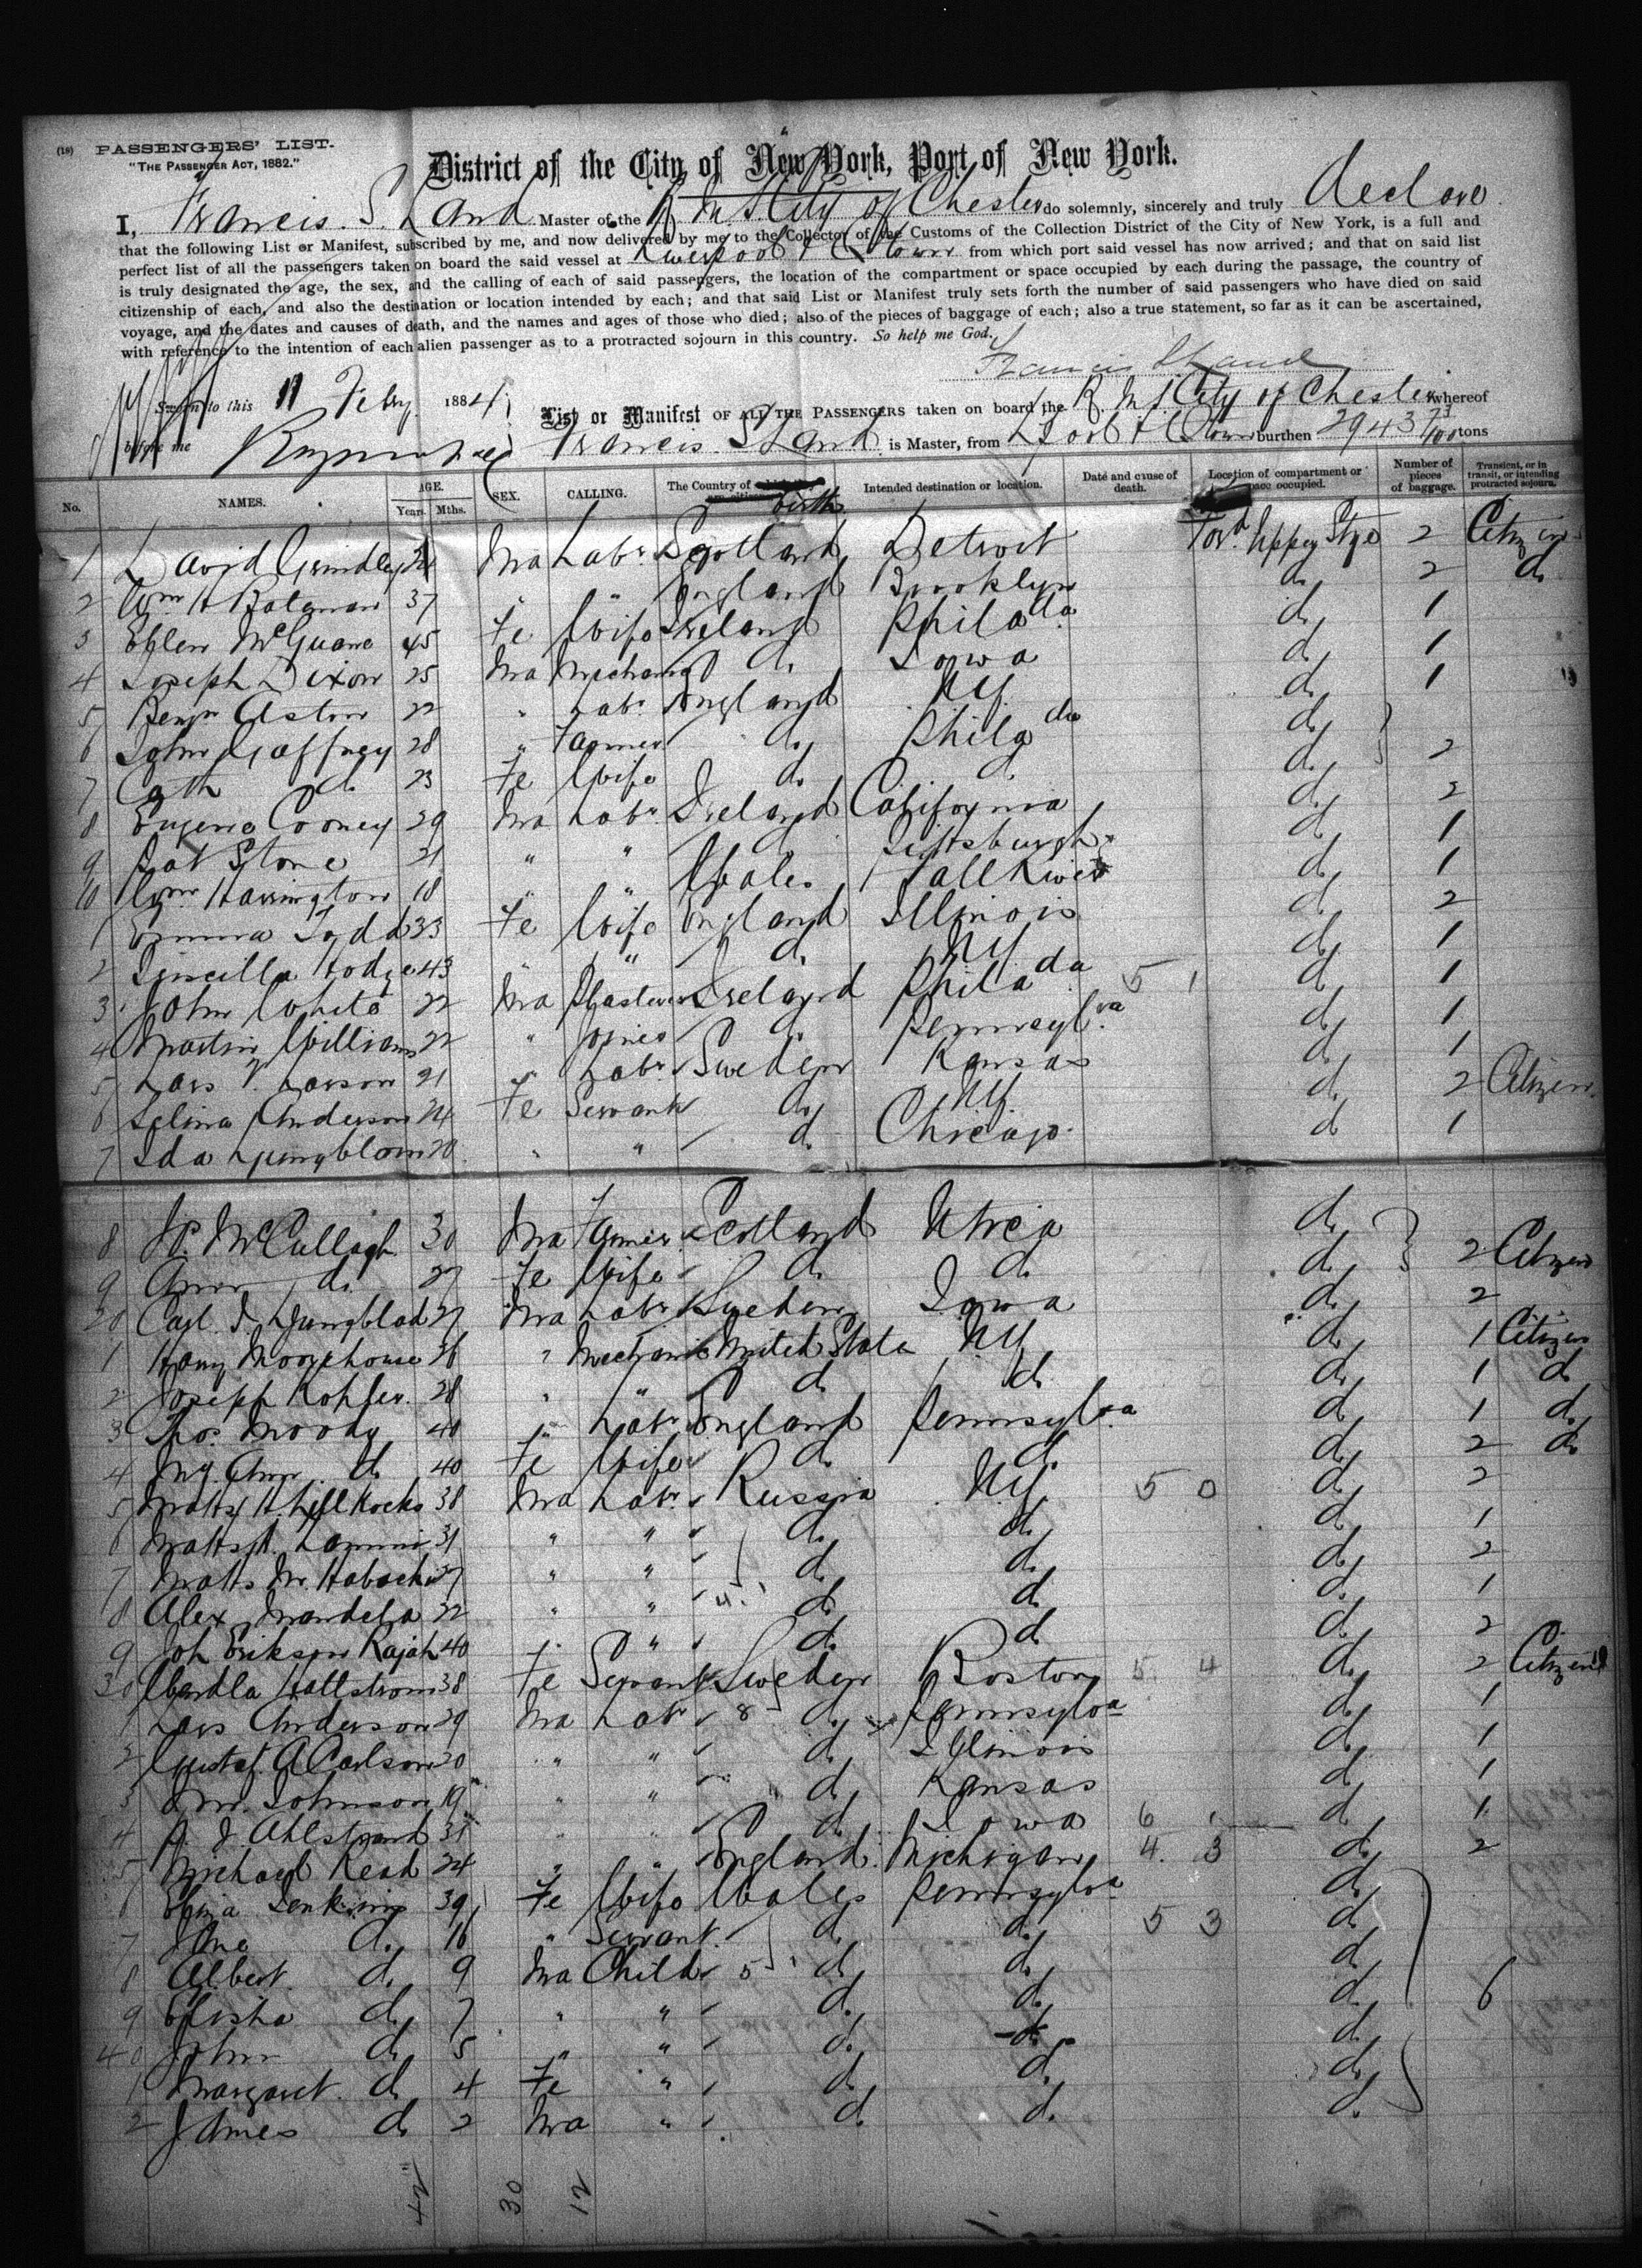 (18) PASSENGERS' LIST.
"THE PASSENGER ACT, 1882."
District of the City of New York, Port of New York.
I, Francis. S. Land Master of the R M S City of Chester do solemnly, sincerely and truly declare
that the following List or Manifest, subscribed by me, and now delivered by me to the Collector of the Customs of the Collection District of the City of New York, is a full and
perfect list of all the passengers taken on board the said vessel at Liverpool & Qtown from which port said vessel has now arrived; and that on said list
is truly designated the age, the sex, and the calling of each of said passengers, the location of the compartment or space occupied by each during the passage, the country of
citizenship of each, and also the destination or location intended by each; and that said List or Manifest truly sets forth the number of said passengers who have died on said
voyage, and the dates and causes of death, and the names and ages of those who died; also of the pieces of baggage of each; also a true statement, so far as it can be ascertained,
with reference to the intention of each alien passenger as to a protracted sojourn in this country. So help me God.
Francis S Land
Sworn to this 11 Feby 1884
before me
List or Manifest OF ALL THE PASSENGERS taken on board the R. M S City of Chester whereof
Francis. S Land is Master, from L'pool & Qtown burthen 2943 73/100 tons
No. NAMES. AGE. Years. Mths. SEX. CALLING. The Country of birth Intended destination or location. Date and cause of death. Location of compartment or space occupied. Number of pieces of baggage. Transient, or in transit, or intending protracted sojourn.
1 David Grindley 24 Ma Labr Scotland Detroit Ford Upper Stge 2 Citizen
2 Wm H Bateman 37 " " England Brooklyn do 2 do
3 Ellen McGuane 45 Fe Wife Ireland Philada do 1
4 Joseph Dixon 25 Ma Mechanic do Iowa do 1
5 Benjn Aston 22 " Labr England NY do 1
6 John Gaffney 28 " Farmer do Philada do
7 Cath do 23 Fe Wife do do do 2
8 Eugene Cooney 29 Ma Labr Ireland California do 2
9 Pat Stone 21 " " do Pittsburgh do 1
10 Wm Harrington 18 " " Wales Fall River do 1
1 Emma Todd 33 Fe Wife England Illinois do 2
2 Priscilla Hodge 43 " " do NY do 1
3 John White 22 Ma Plasterer Ireland Philada 5 1 do 1
4 Martin Williams 22 " Joiner do Pennsylva do 1
5 Lars P. Larson 21 " Labr Sweden Kansas do 1
6 Selina Anderson 24 Fe Servant do NY do 2 Citizen
7 Ida Ljungblom 20 " " do Chicago do 1
8 W. McCullagh 30 Ma Farmer Scotland Utica do
9 Ann do 27 Fe Wife do do do 2 Citizen
20 Carl J. Ljungblad 27 Ma Labr Sweden Iowa do 2
1 Harry Moorehouse 36 " Mechanic United States NY do 1 Citizen
2 Joseph Kohler 28 " " do do do 1 do
3 Thos Moody 40 " Labr England Pennsylva do 1 do
4 My Ann do 40 Fe Wife do do do 2 do
5 38 Ma Labr Russia NY 5 0 do 2
6 31 " " do do do 1
7 27 " " do do do 2
8 Alex 22 " " 4 do do do 1
9 Joh Erikson 40 " " do do do 2
30 Hallstrom 38 Fe Servant Sweden Boston 5 4 do 2 Citizen
1 Lars Anderson 29 Ma Labr 8 do Pennsylva do 1
2 Gustaf A Carlson 20 " " do Illinois do 1
3 Johnson 19 " " do Kansas do 1
4 P. J. Ahlstrand 31 " " do Iowa 6 do 1
5 Michael Read 24 " " England Michigan 4 3 do 2
6 Eliza Jenkins 39 Fe Wife Wales Pennsylva do
7 Jane do 16 " Servant do do 5 3 do
8 Albert do 9 Ma Child 5 do do do
9 Elisha do 7 " " do do do 6
40 John do 5 " " do do do
1 Margaret do 4 Fe " do do do
2 James do 2 Ma " do do do
42 30 12